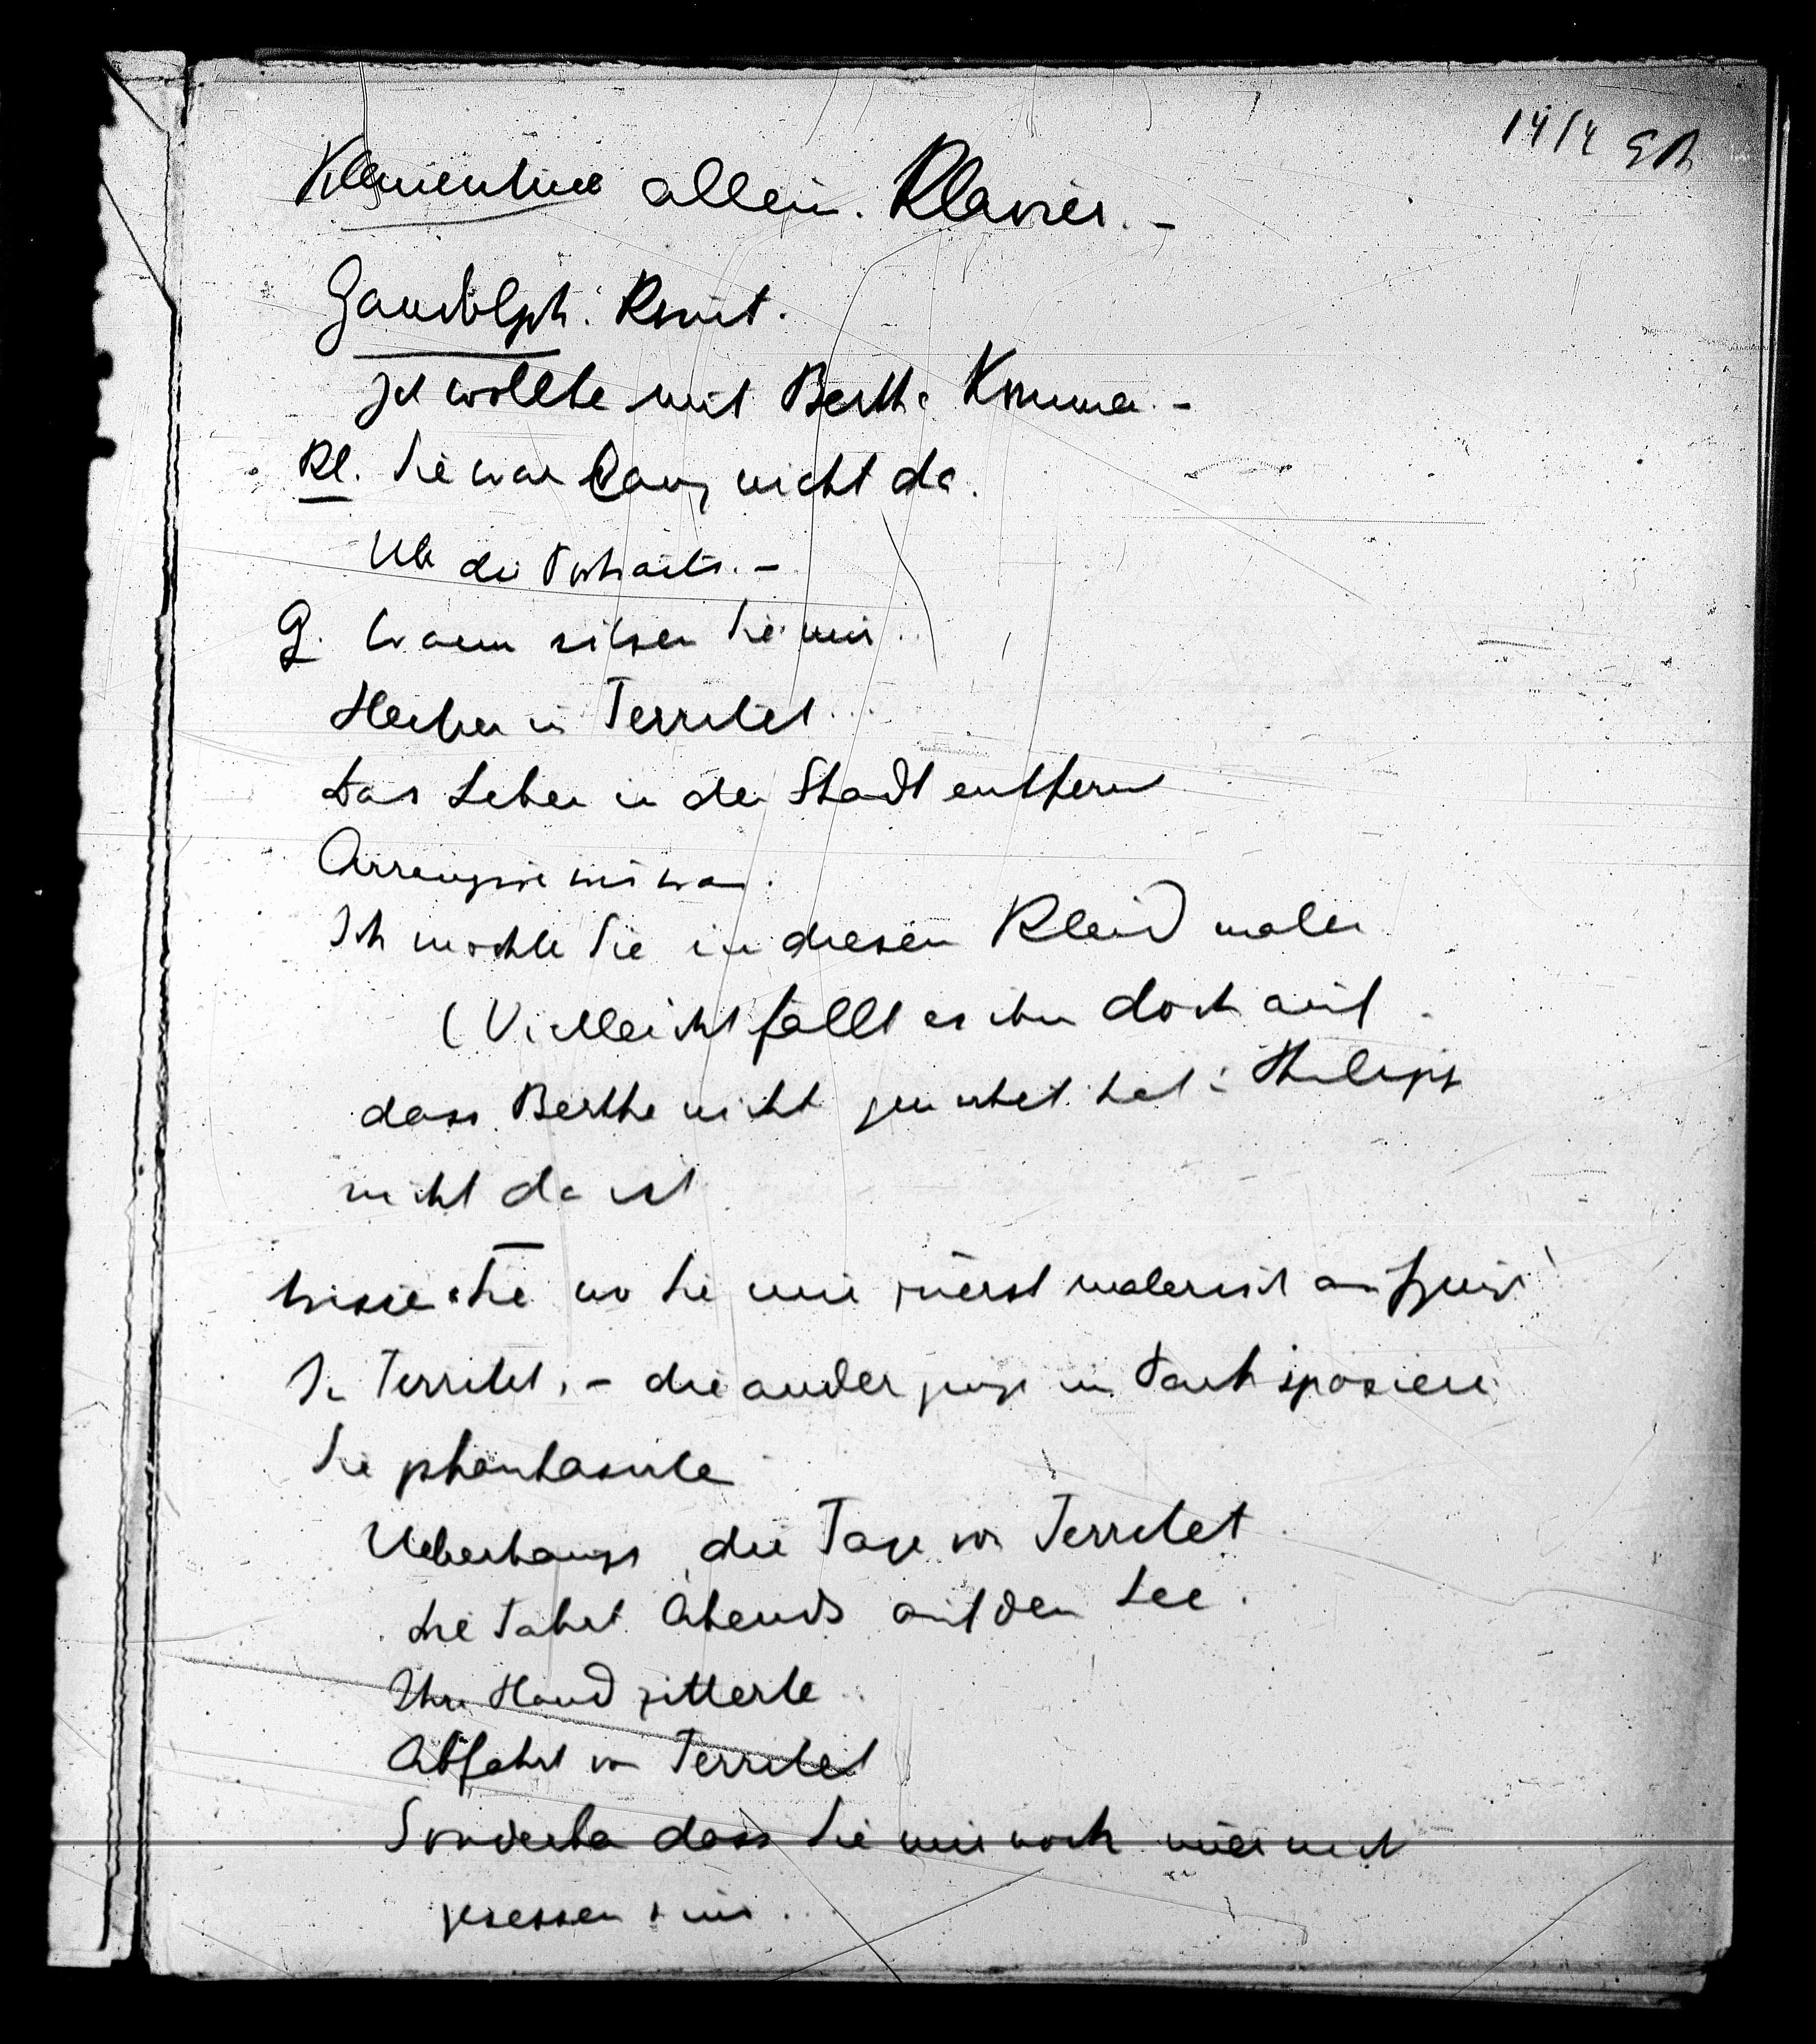 14/4
Klementine allein. Klavier. –
Gandolph: Kommt.
Ich wollte mit Berthe kommen. –
Kl. Sie war lang nicht da.
Ueber die Portraits. –
G. Warum sitzen Sie mir ..
Herber in Territet ...
Das Leben in der Stadt entfernt
Arrangire
Ich möchte Sie in diesem Kleid malen
(Vielleicht fällt es ihm doch auf
dass Berthe nicht gewartet hat: Philipp
nicht da ist
Wissen Sie wo Sie mir zuerst malerisch
In Territet. – die andern gingen im Park spazieren
Sie phantasirten
Ueberhaupt die Tage von Territet
Die Fahrt Abends auf dem See.
Ihre Hand zitterte ..
Abfahrt von Territet
Sonderbar dass Sie mir noch nie
gesessen sind ...